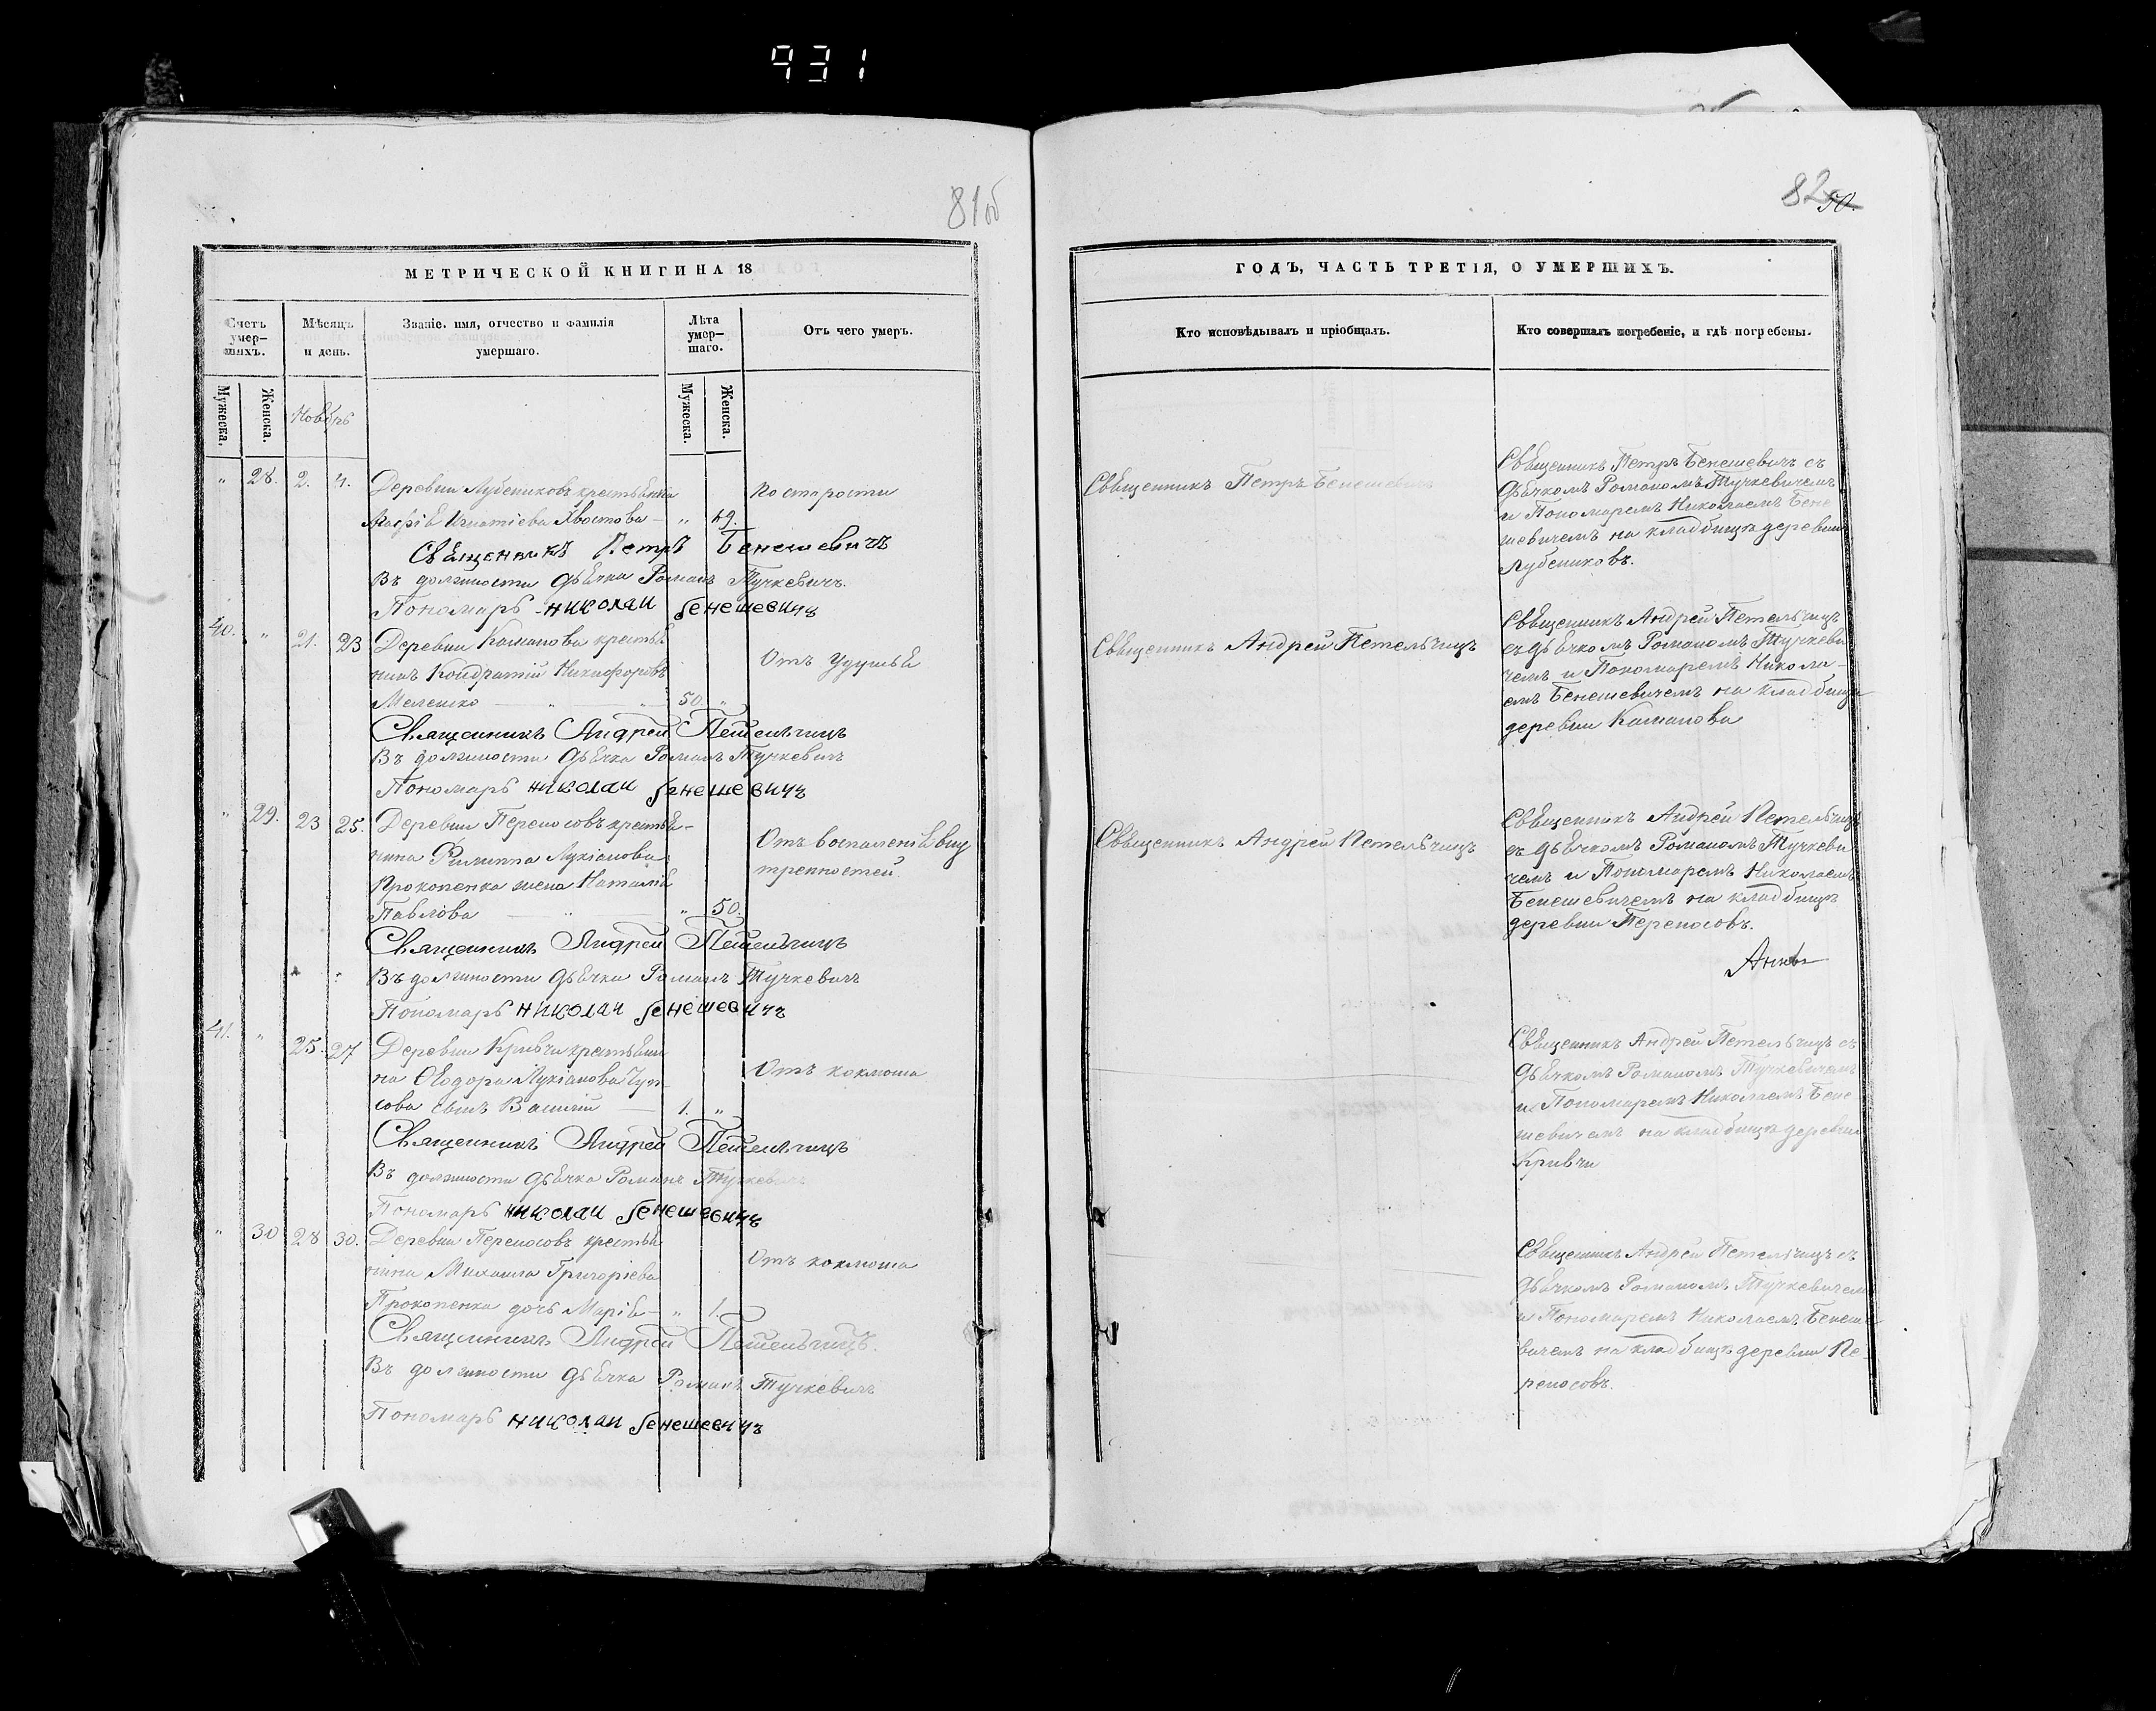 931
81об
МЕТРИЧЕСКОЙ КНИГИ НА 18
Счетъ умер-шихъ.
Мѣсяцъ и день.
Званіе, имя, отчество и фамилія умершаго.
Лѣта умер-шаго.
Отъ чего умеръ.
Мужеска.
Женска.
Ноябрь
Мужеска.
Женска.
" 28. 2. 4. Деревни Лубениковъ крестьянка По старости
Игнатіева Хвостова — "
Священникъ Петръ Бенешевичъ
Въ должности дьячка Романъ Тучкевичъ.
Пономарь Николай Бенешевичъ
40. " 21. 23 Деревни Каманова крестья
нинъ Кондратій Никифоровъ Отъ удушья
Мелешко — " — " 50. "
Священникъ Андрей Петельчицъ
Въ должности дьячка Романъ Тучкевичъ
Пономарь Николай Бенешевичъ
" 29. 23 25. Деревни Переносовъ крестья-
нина Филиппа Лукіанова Отъ воспаленія вну
Прокопенка жена Наталія тренностей.
Павлова — " — " 50.
Священникъ Андрей Петельчицъ
Въ должности дьячка Романъ Тучкевичъ
Пономарь Николай Бенешевичъ
41. " 25. 27 Деревни Кривчи крестьяни
на Ѳеодора Лукіанова Отъ коклюша
сова сынъ — 1. "
Священникъ Андрей Петельчицъ
Въ должности дьячка Романъ Тучкевичъ
Пономарь Николай Бенешевичъ
" 30 28 30. Деревни Переносовъ крестья
нина Михаила Григоріева Отъ коклюша
Прокопенка дочь Марія — " 1.
Священникъ Андрей Петельчицъ.
Въ должности дьячка Романъ Тучкевичъ
Пономарь Николай Бенешевичъ
82 50.
ГОДЪ, ЧАСТЬ ТРЕТІЯ, О УМЕРШИХЪ.
Кто исповѣдывалъ и пріобщалъ.
Кто совершалъ погребеніе, и гдѣ погребены.
Священникъ Петръ Бенешевичъ
Священникъ Петръ Бенешевичъ съ
дьячкомъ Романомъ Тучкевичемъ
и Пономаремъ Николаемъ Бене
шевичемъ на кладбищѣ деревни
Лубениковъ.
Священникъ Андрей Петельчицъ
Священникъ Андрей Петельчицъ
съ дьячкомъ Романомъ Тучкеви
чемъ и Пономаремъ Никола-
емъ Бенешевичемъ на кладбищѣ
деревни Каманова
Священникъ Андрей Петельчицъ
Священникъ Андрей Петельчицъ
съ дьячкомъ Романомъ Тучкеви
чемъ и Пономаремъ Николаемъ
Бенешевичемъ на кладбищѣ
деревни Переносовъ.
Священникъ Андрей Петельчицъ съ
дьячкомъ Романомъ Тучкевичемъ
и Пономаремъ Николаемъ Бене
шевичемъ на кладбищѣ деревни
Кривчи
Священникъ Андрей Петельчицъ съ
дьячкомъ Романомъ Тучкевичемъ
и Пономаремъ Николаемъ Бенеше
вичемъ на кладбищѣ деревни Пе-
реносовъ.